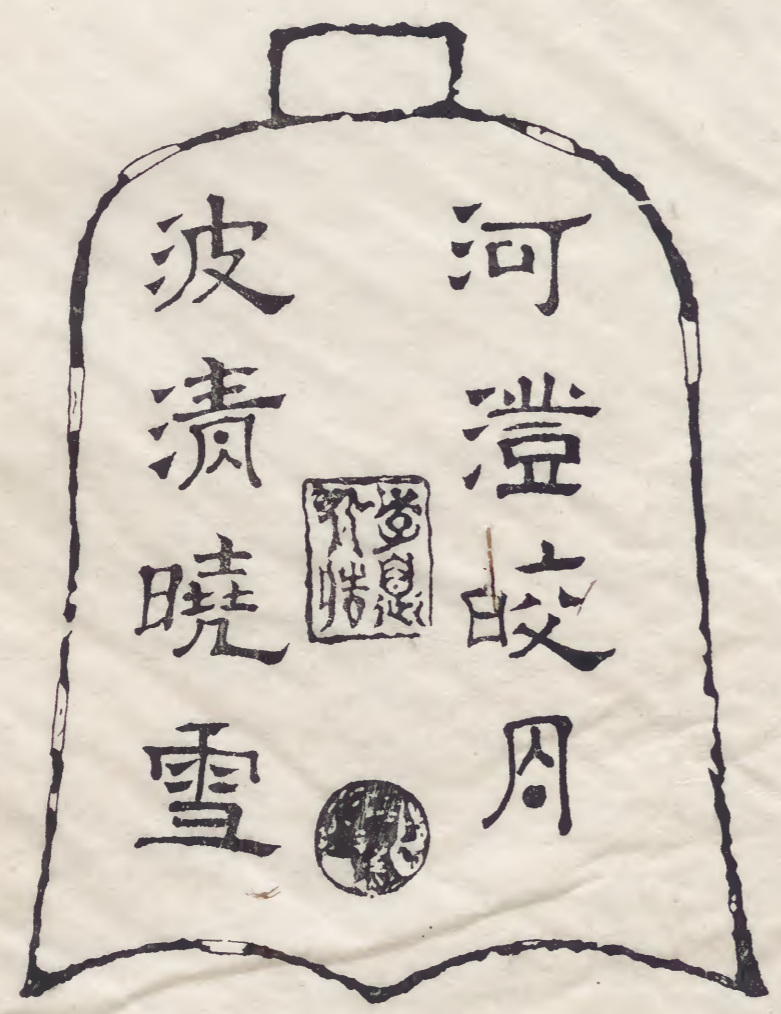 河澄皎月
波清曉雪